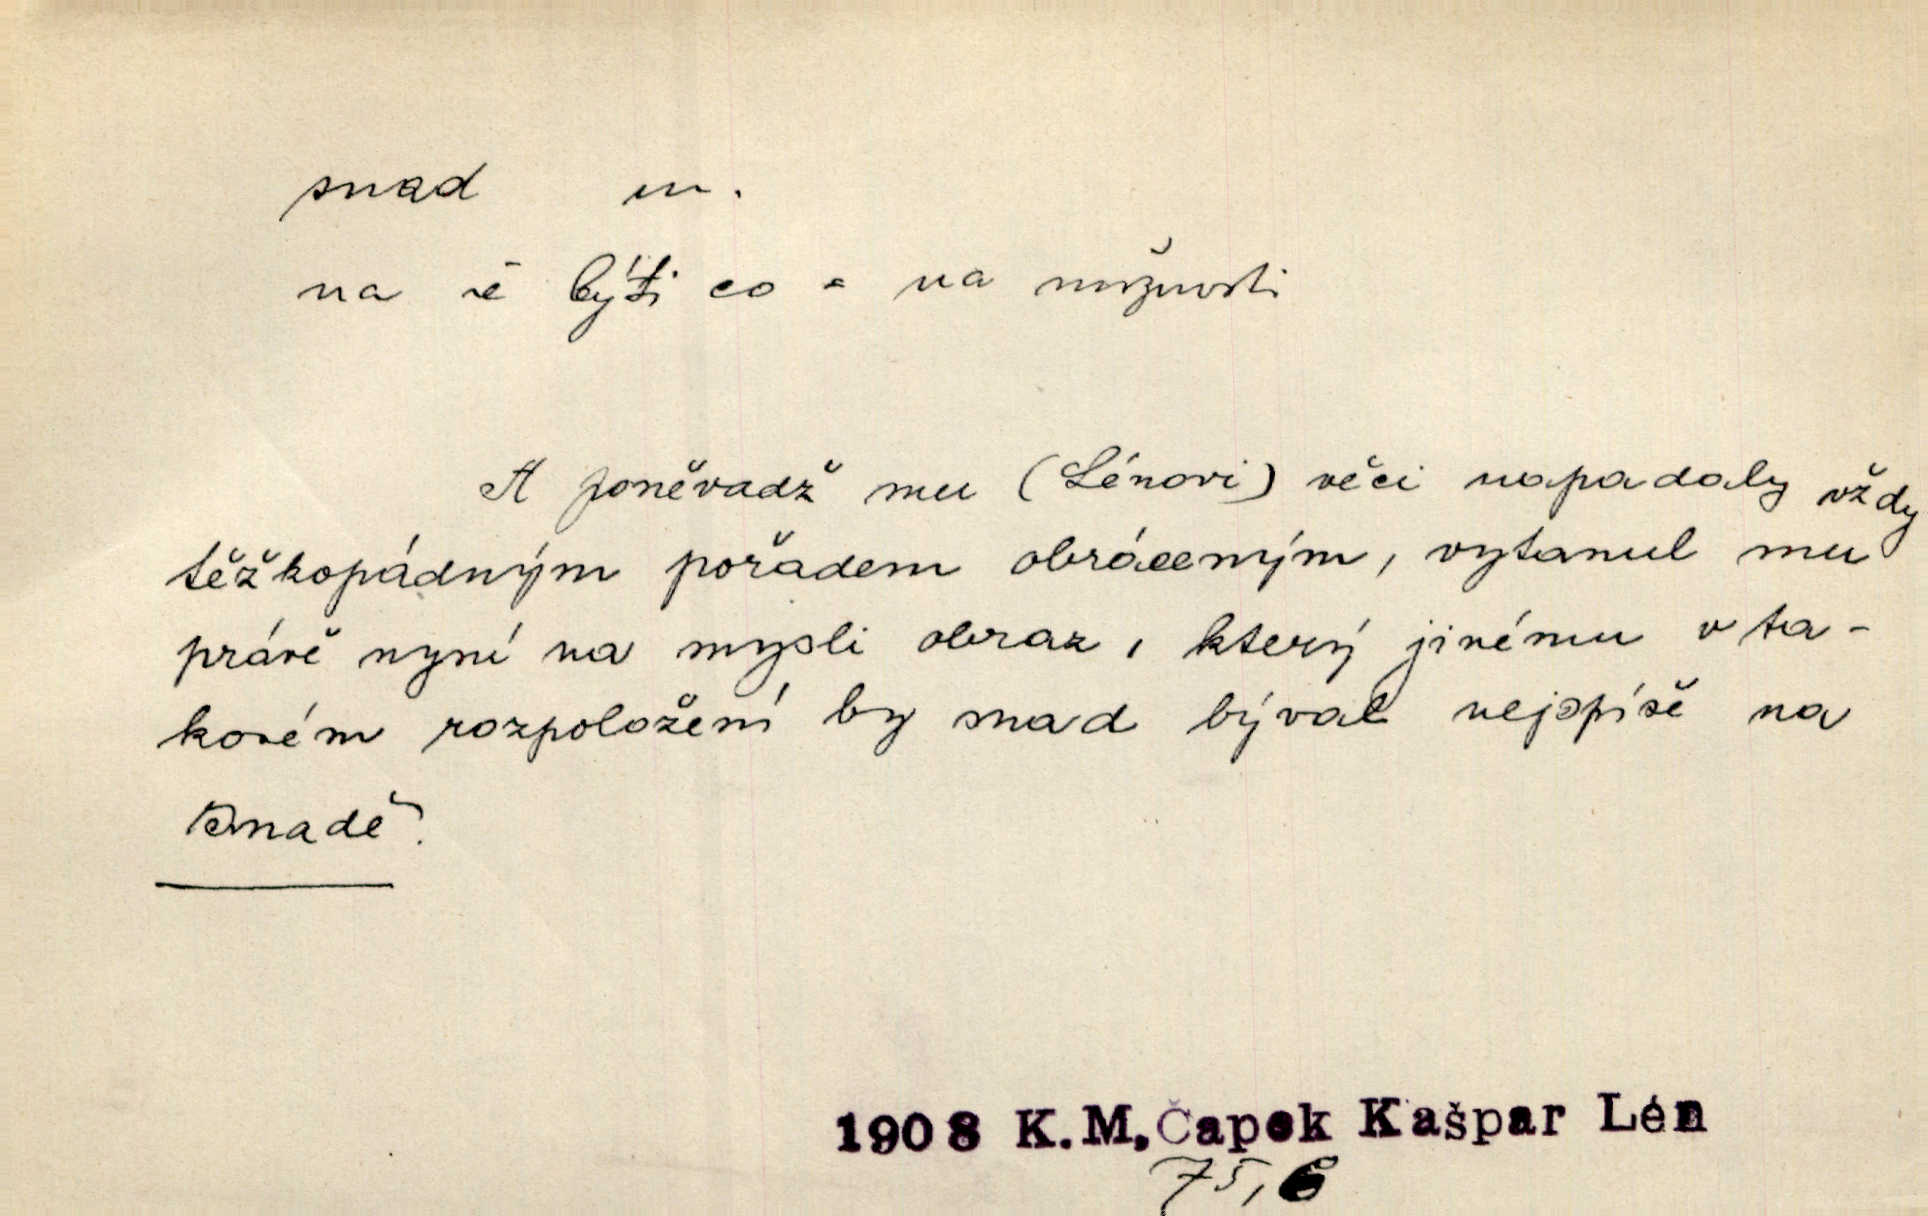 snad m.
na ~ě býti co = na možnosti
A poněvadž mu (Lénovi) věci napadaly vždy
těžkopádným pořadem obráceným, vytanul mu
právě nyní na mysli obraz, který jinému v ta-
kovém rozpoložení by snad býval nejspíše na
snadě.
1908 K.M.Čapek Kašpar Lén
75,6